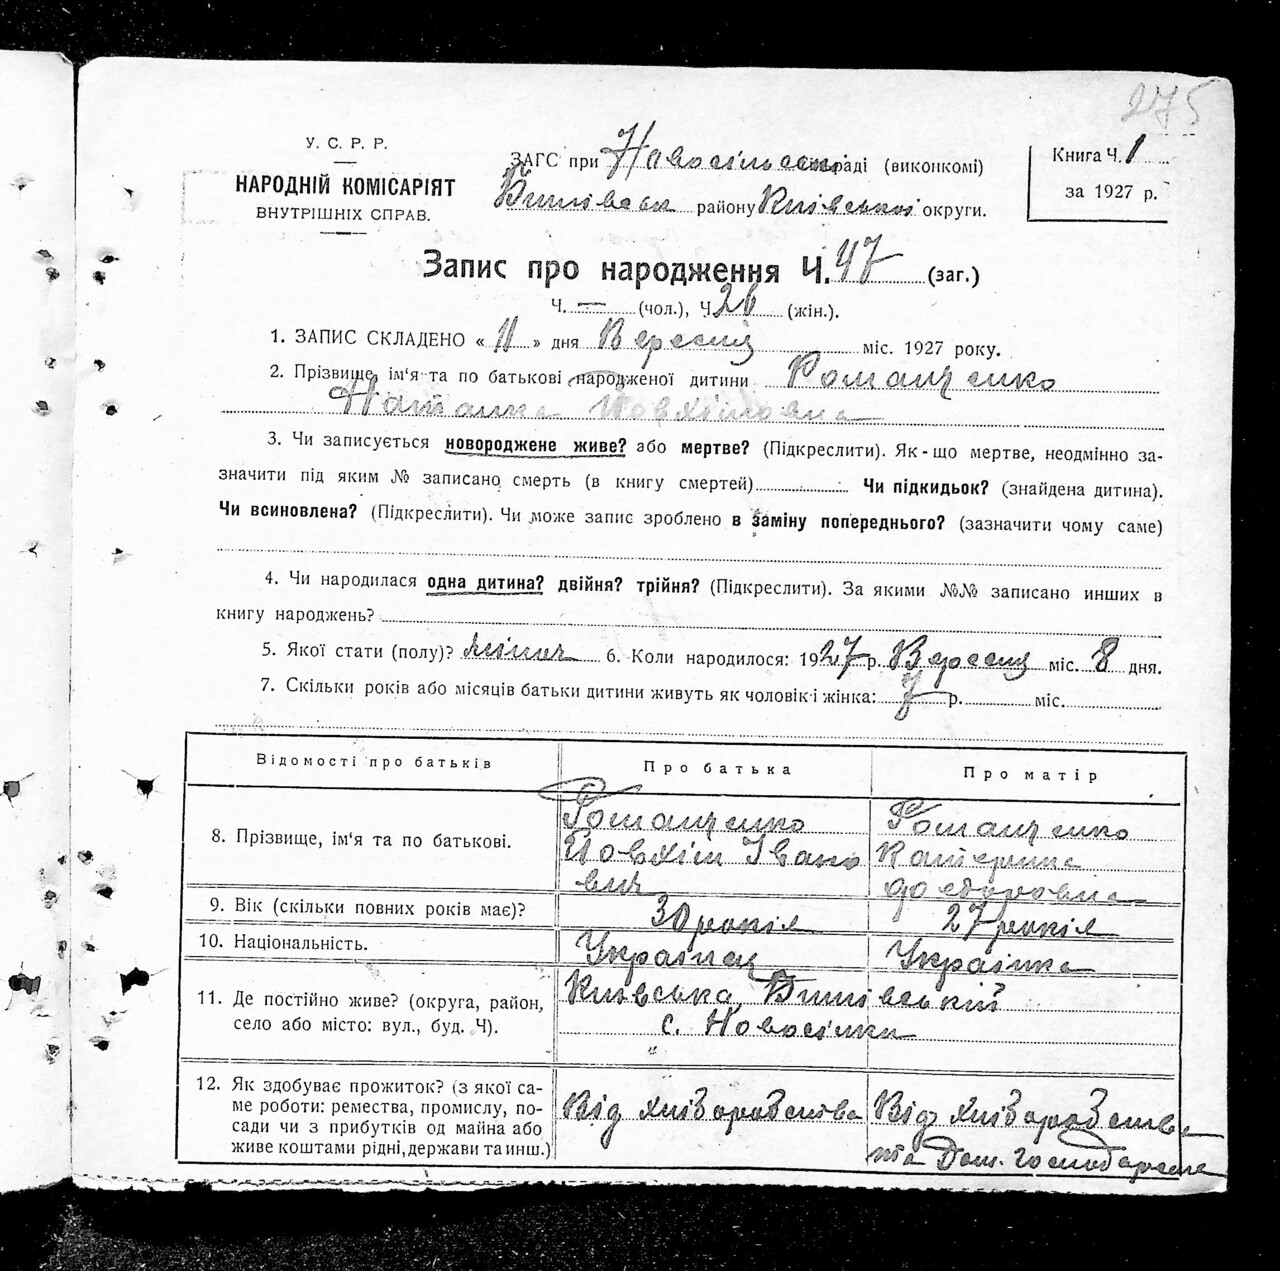 275
У. С. Р. Р.
НАРОДНІЙ КОМІСАРІЯТ
ВНУТРІШНІХ СПРАВ.
ЗАГС при раді (виконкомі)
району Київської округи.
Книга Ч. 1
за 1927 р.
Запис про народження Ч. 47 (заг.)
Ч. — (чол.), Ч. 26 (жін.).
1. ЗАПИС СКЛАДЕНО « 11 » дня Вересня міс. 1927 року.
2. Прізвище, ім'я та по батькові народженої дитини Романченко
Наталка Йовхімовна
3. Чи записується новороджене живе? або мертве? (Підкреслити). Як-що мертве, неодмінно за-
значити під яким № записано смерть (в книгу смертей) Чи підкидьок? (знайдена дитина).
Чи всиновлена? (Підкреслити). Чи може запис зроблено в заміну попереднього? (зазначити чому саме)
4. Чи народилася одна дитина? двійня? трійня? (Підкреслити). За якими №№ записано инших в
книгу народжень?
5. Якої стати (полу)? жіноч 6. Коли народилося: 1927 р. Вересня міс. 8 дня.
7. Скільки років або місяців батьки дитини живуть як чоловік і жінка: 7 р. міс.
Відомості про батьків Про батька Про матір
8. Прізвище, ім'я та по батькові.
Романченко
Йовхім Івано
вич
Романченко
Катерина
Федоровна
9. Вік (скільки повних років має)? 30 років 27 років
10. Національність. Українец Українка
11. Де постійно живе? (округа, район,
село або місто: вул., буд. Ч).
Київська,
с. Новосілки
"
12. Як здобуває прожиток? (з якої са-
ме роботи: ремества, промислу, по-
сади чи з прибутків од майна або
живе коштами рідні, держави та инш.)
Від хліборобства
Від хліборобства
та Дом. Господарства